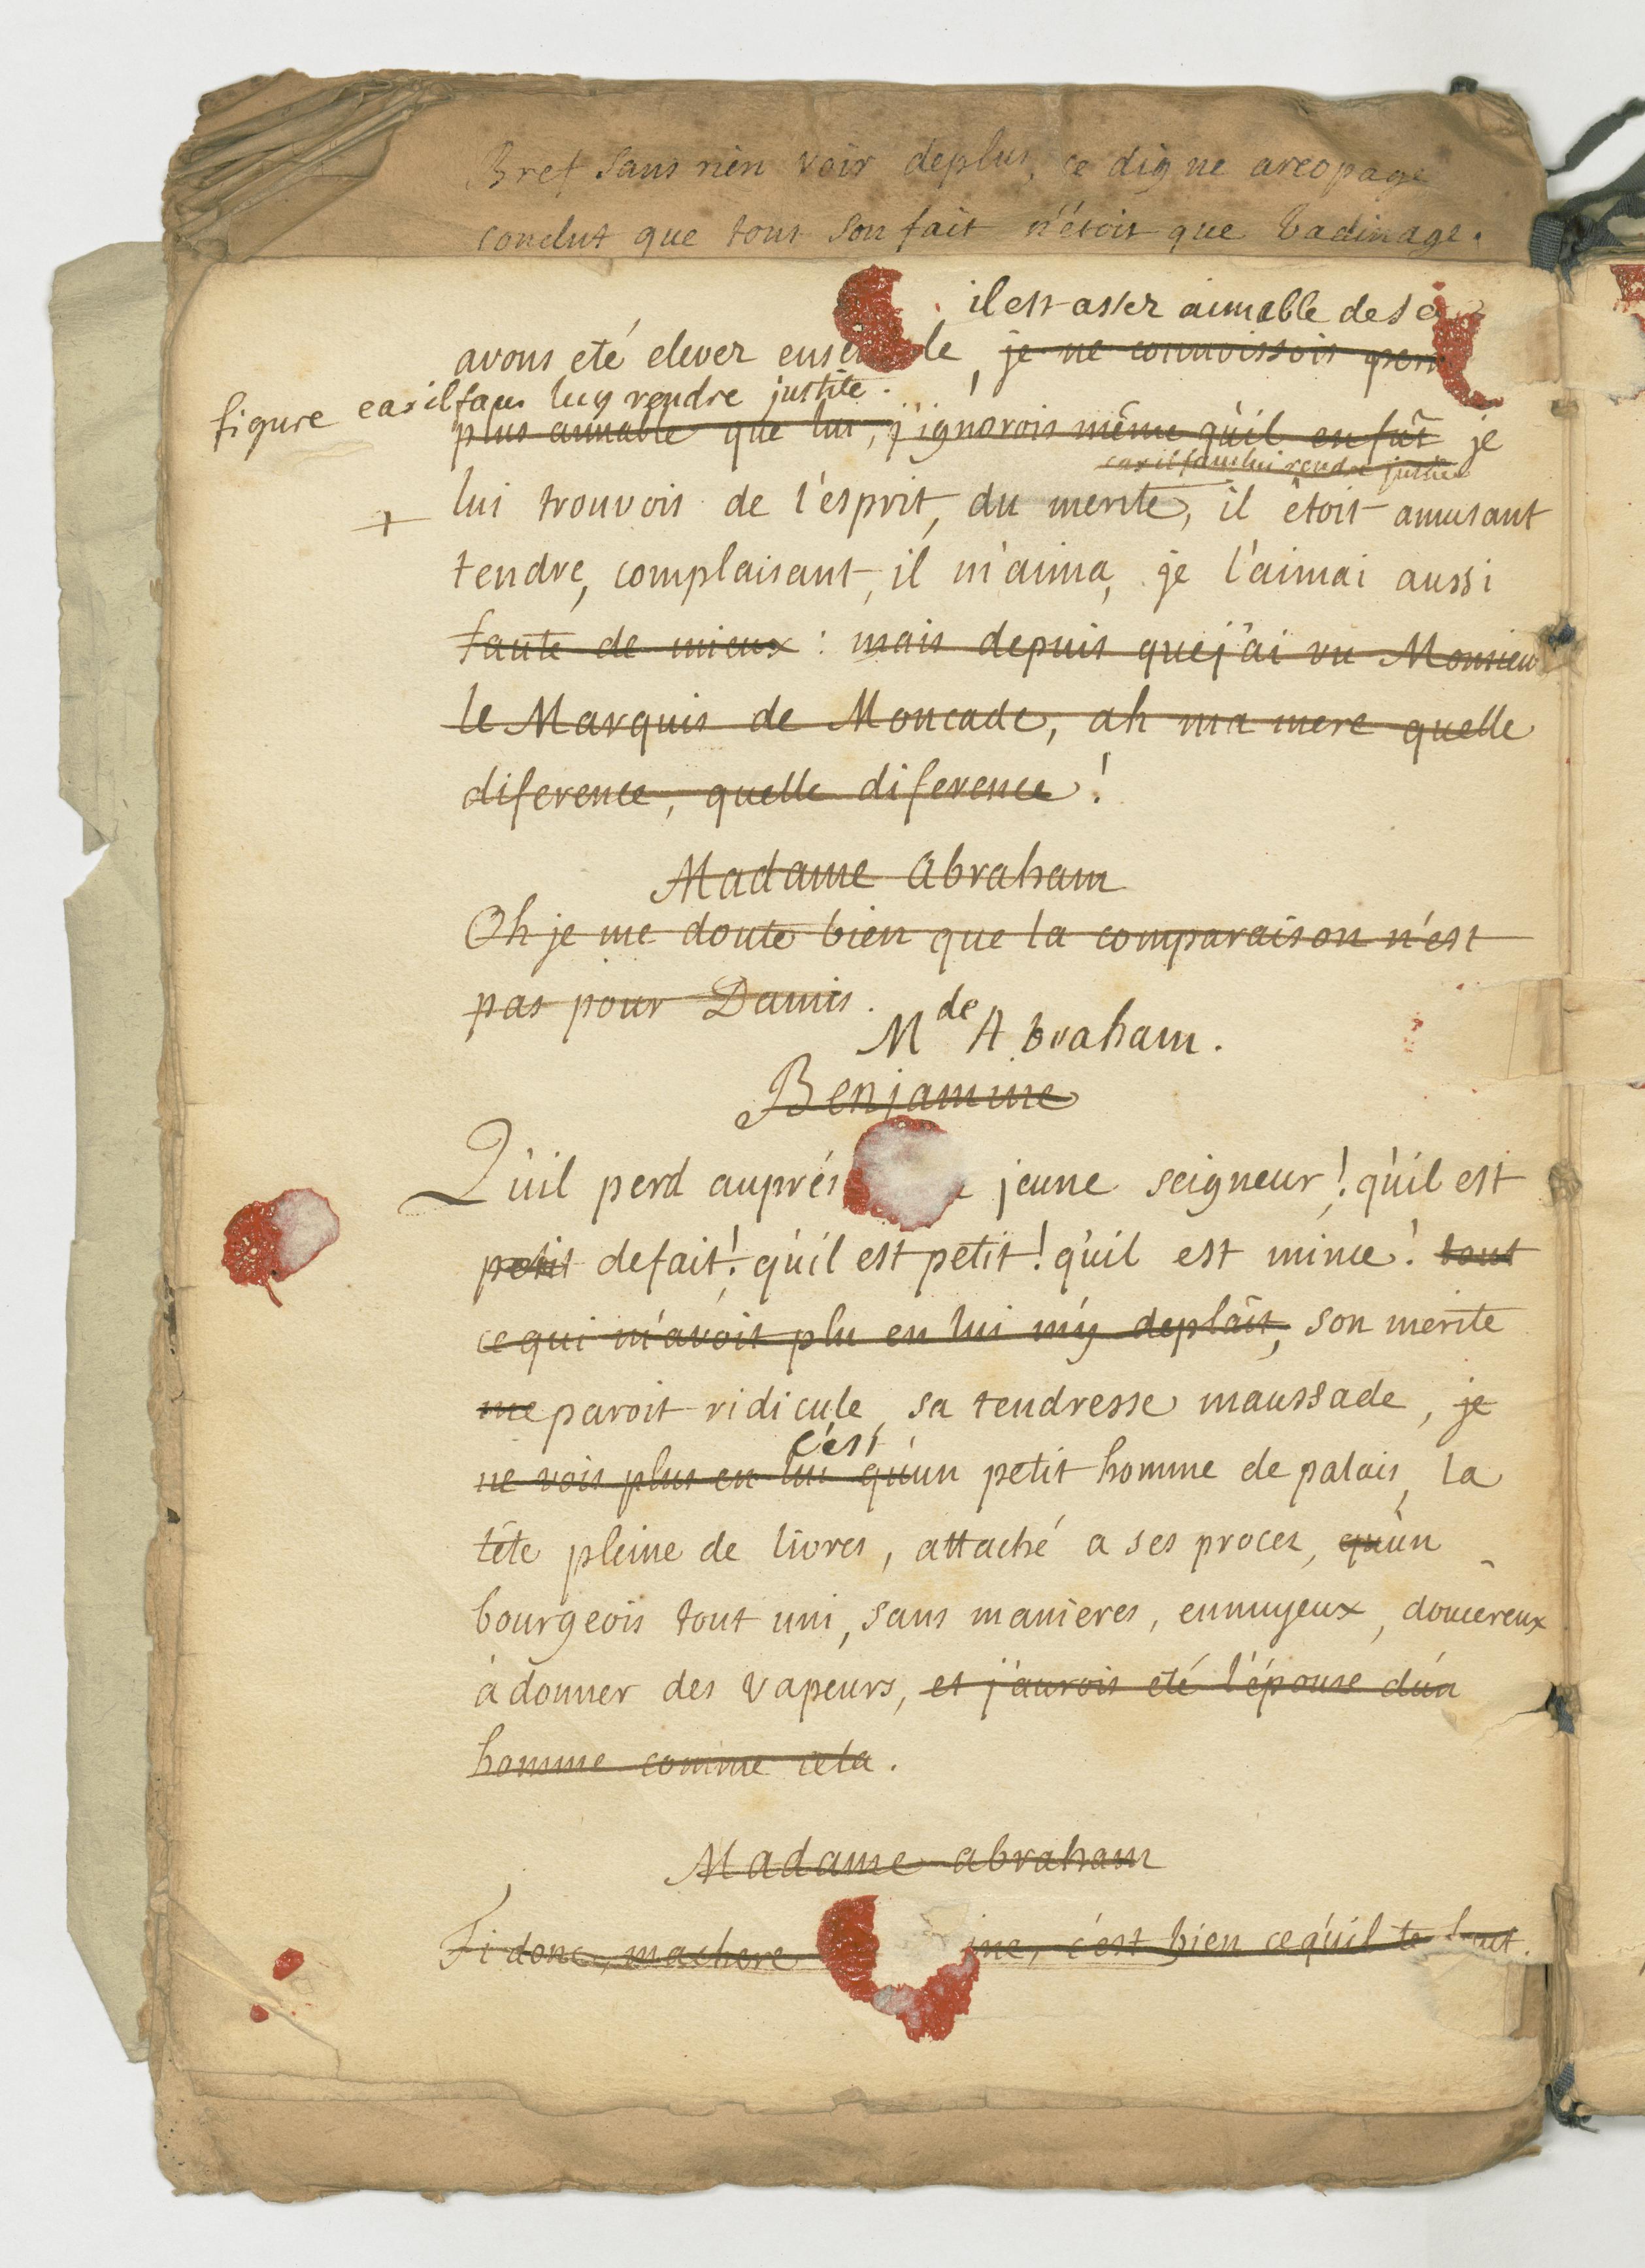 Bref sans rien voir deplus, ce digne areopage
conclut que tout son fait n'étoit que badinage.
il est assez aimable de sa
avons eté elever ensemble, je ne connoissois
figure car il faut luy rendre justice.
plus aimable que lui, j'ignorois même qu'il en fût je
car il faut lui rendre justice
+ lui trouvois de l'esprit, du merite, il étoit amusant
tendre, complaisant, il m'aima, je l'aimai aussi
faute de mieux : mais depuis que j'ai vu Monsieur
le Marquis de Moncade, ah ma mere quelle
diference, quelle diference !
Madame Abraham
Oh je me doute bien que la comparaison n'est
pas pour Damis.
Mde Abraham.
Benjamine
Qu'il perd auprés jeune seigneur ! qu'il est
petit defait ! qu'il est petit ! qu'il est mince ! tout
ce qui m'avoit plu en lui m'y deplâit, son merite
me paroit ridicule, sa tendresse maussade, je
c'est
ne vois plus en lui qu'un petit homme de palais, la
tête pleine de livres, attaché a ses procez, qu'un
bourgeois tout uni, sans manieres, ennuyeux, doucereux
à donner des vapeurs, et j'aurois eté l'épouse d'un
homme comme cela.
Madame abraham
Fi donc, ma chere ine, c'est bien ce qu'il te faut.